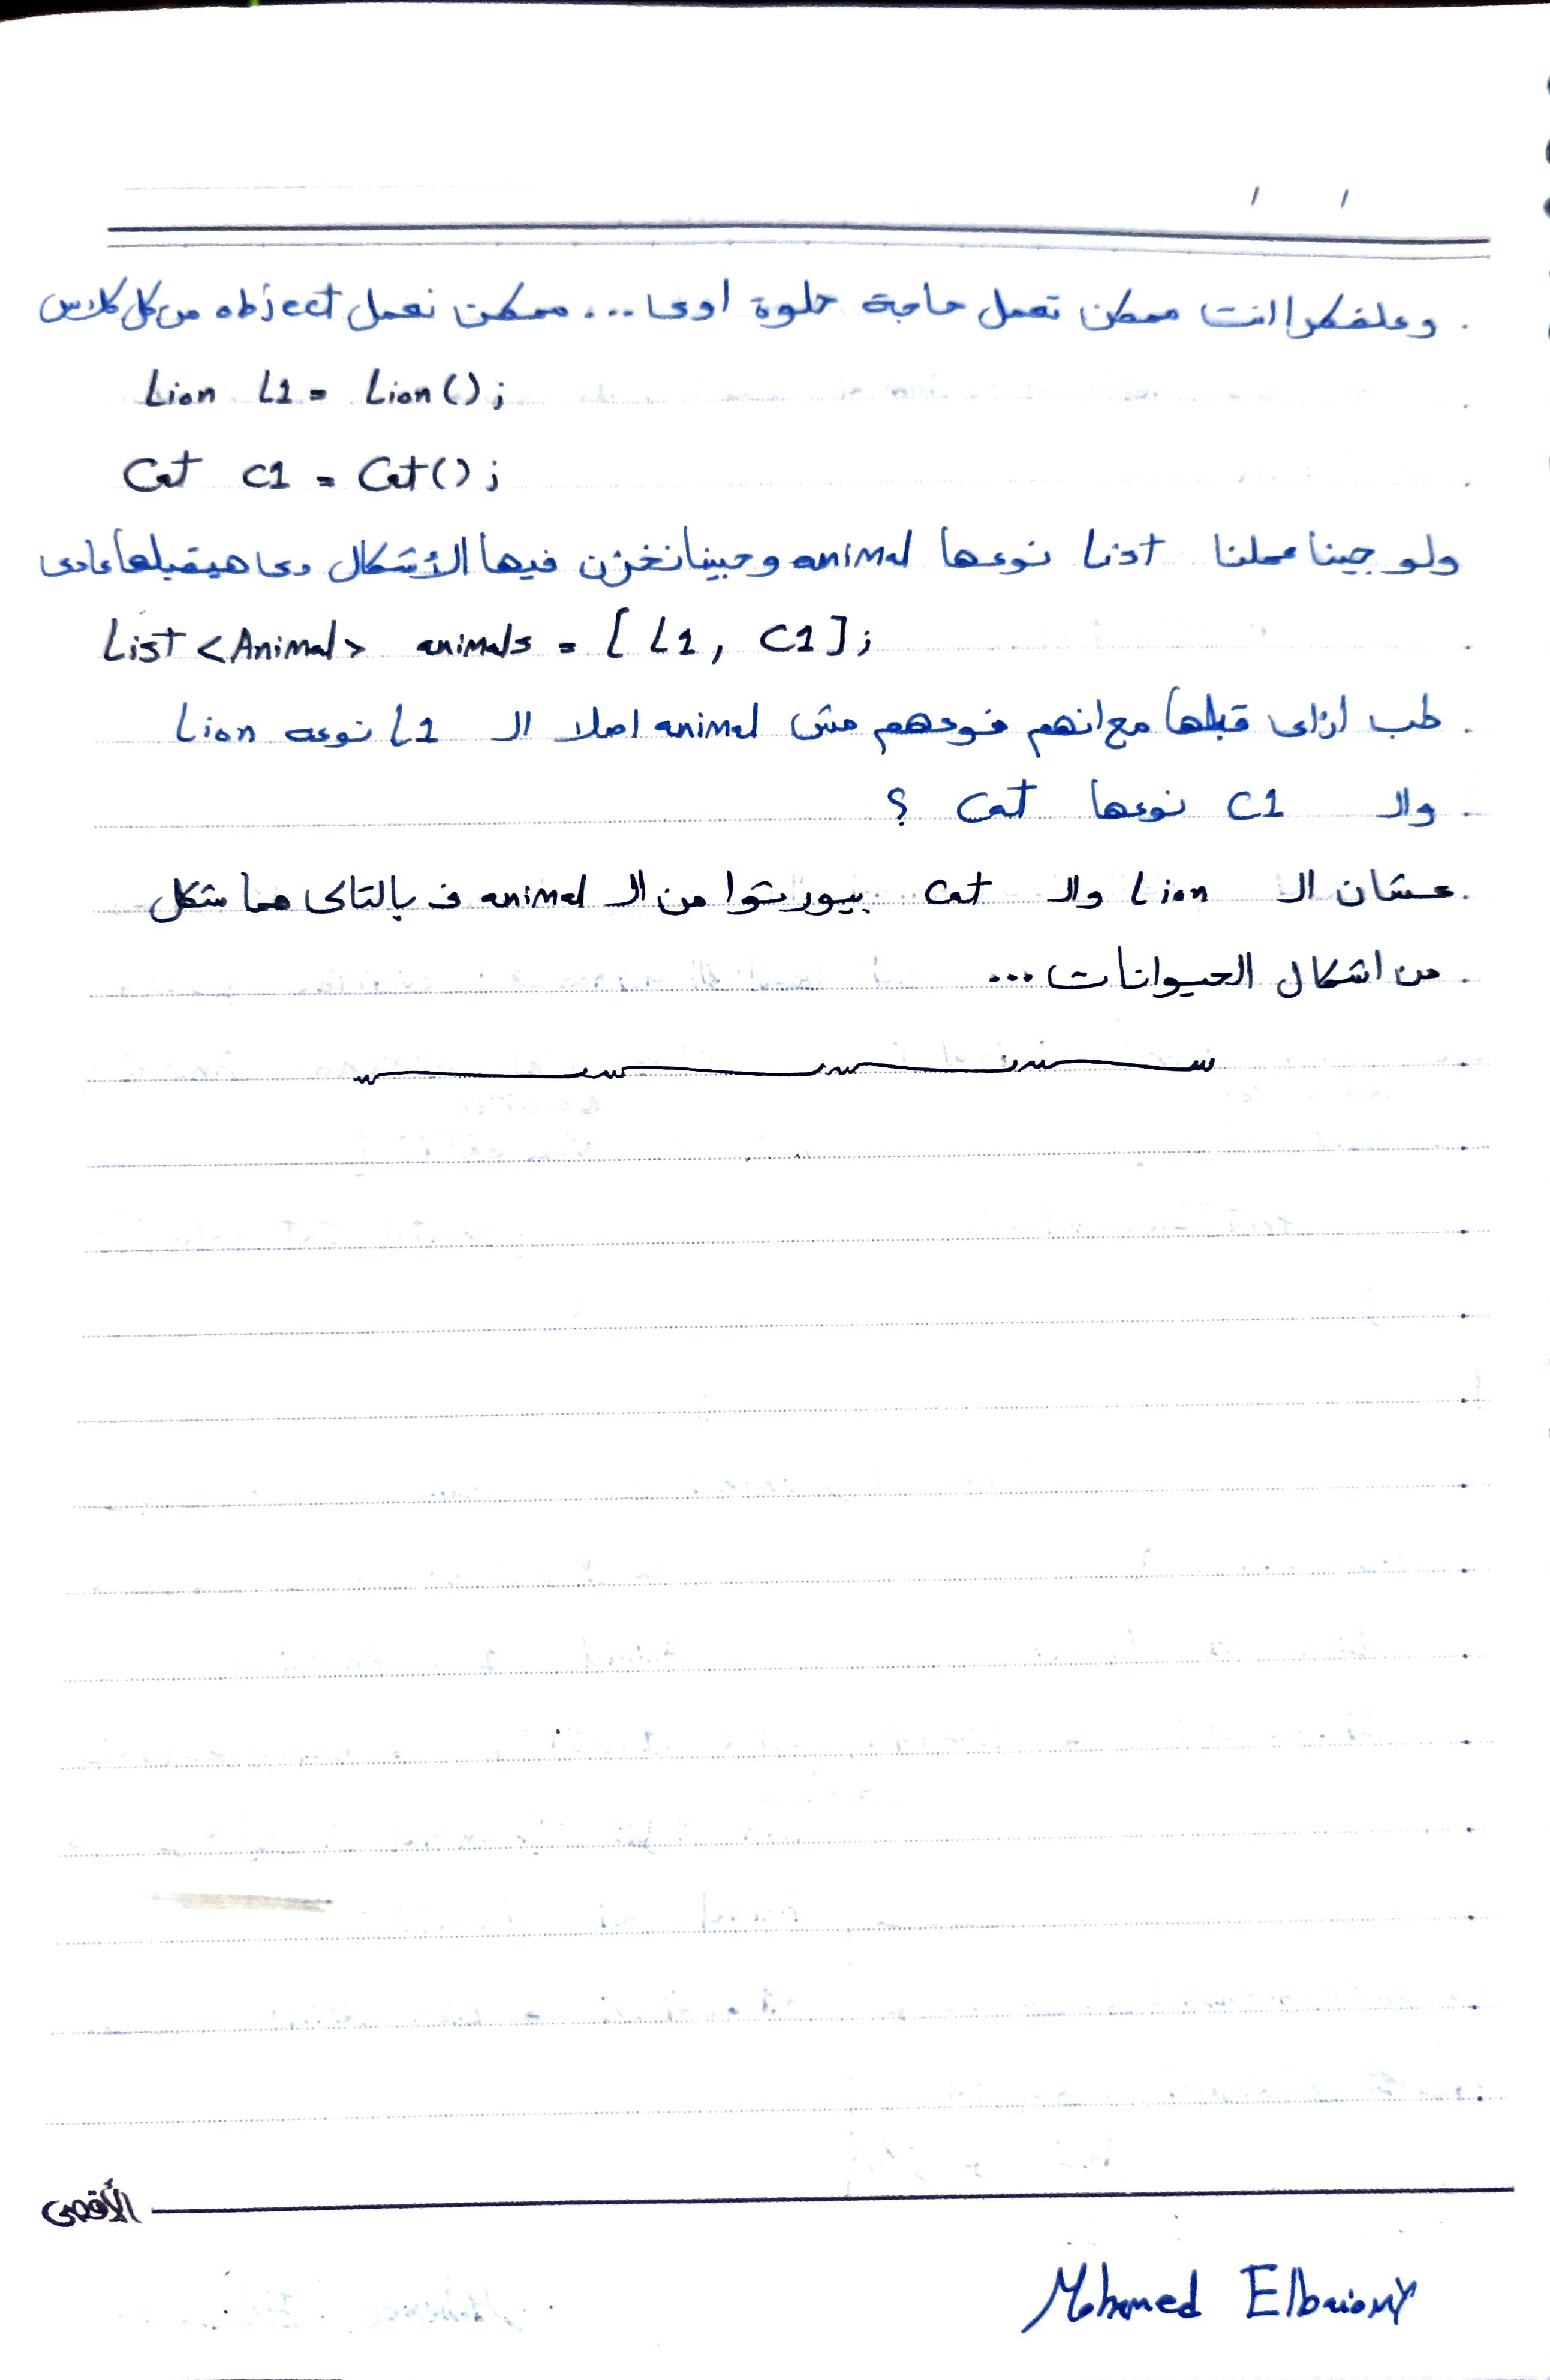 وعلفكرا انت ممكن تعمل حاجة حلوة اوى... ممكن نعمل object من كل كلاس
Lion L1 = Lion();
Cat C1 = Cat();
ولو جينا عملنا نوعها animal وجينا نخزن فيها الأشكال دى هيقبلها عادى
List <Animal> animals = [L1, C1];
طب ازاى قبلها مع انهم نوعهم مش animal اصلا ال L1 نوعه Lion
وال C1 نوعها Cat ؟
عشان ال Lion وال Cat بيورثوا من ال animal ف بالتالى هما شكل
من اشكال الحيوانات...
الأقصى
Mohamed Elbaiomy